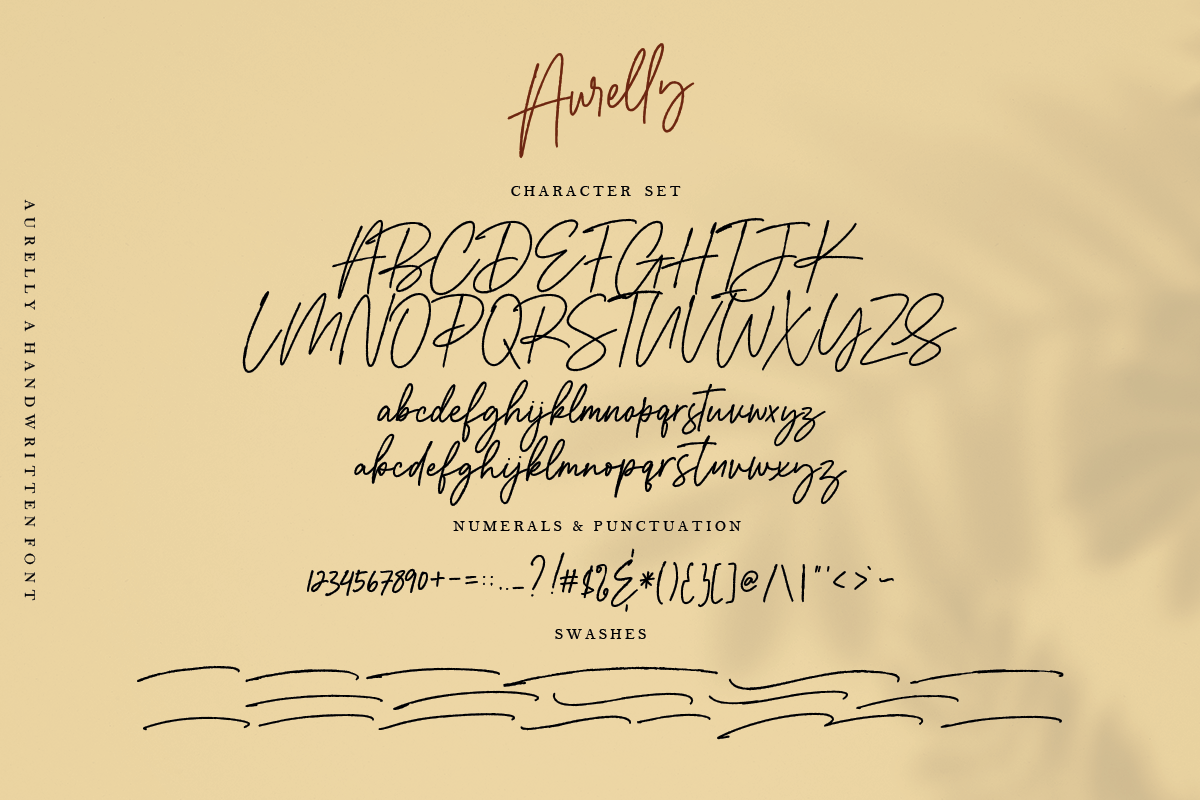 Aurelly
CHARACTER SET
ABCDEFGHIJK
LMNOPQRSTUVWXYZS
abcdefghijklmnopqrstuvwxyz
abcdefghijklmnopqrstuvwxyz
NUMERALS & PUNCTUATION
1234567890+-=:;.,_?!#$%&*(){}[]@/\|"'<>`~
SWASHES
AURELLY A HANDWRITTEN FONT